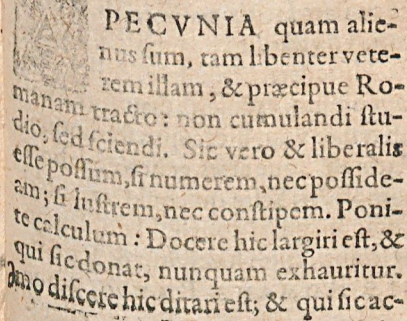 A PECVNIA quam alie-
nus ſum, tam libenter vete-
rem illam, & præcipue Ro-
manam tracto: non cumulandi ſtu-
dio, ſed ſciendi. Sic vero & liberalis
eſſe poſſum, ſi numerem, nec poſſide-
am; ſi luſtrem, nec conſtipem. Poni-
te calculum: Docere hic largiri eſt, &
qui ſic donat, nunquam exhauritur.
diſcere hic ditari eſt; & qui ſic ac-